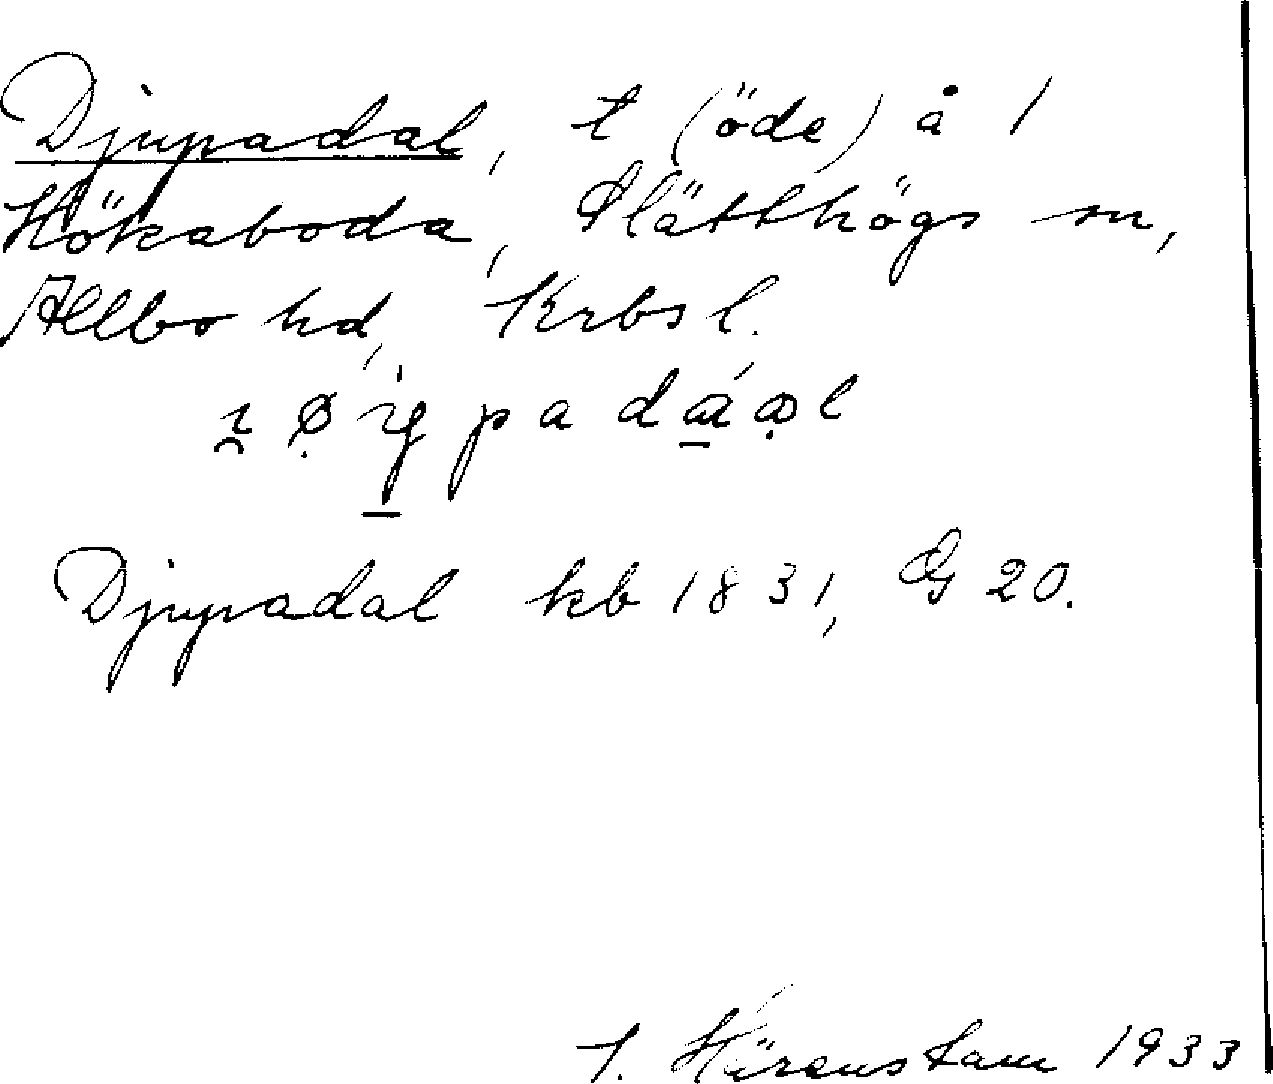 Djupadal, t (öde) å 1
Hökaboda, Slätthögs sn,
Allbo hd, Krbs l.
Djupadal kb 1831, G 20.
J. Härenstam 1933